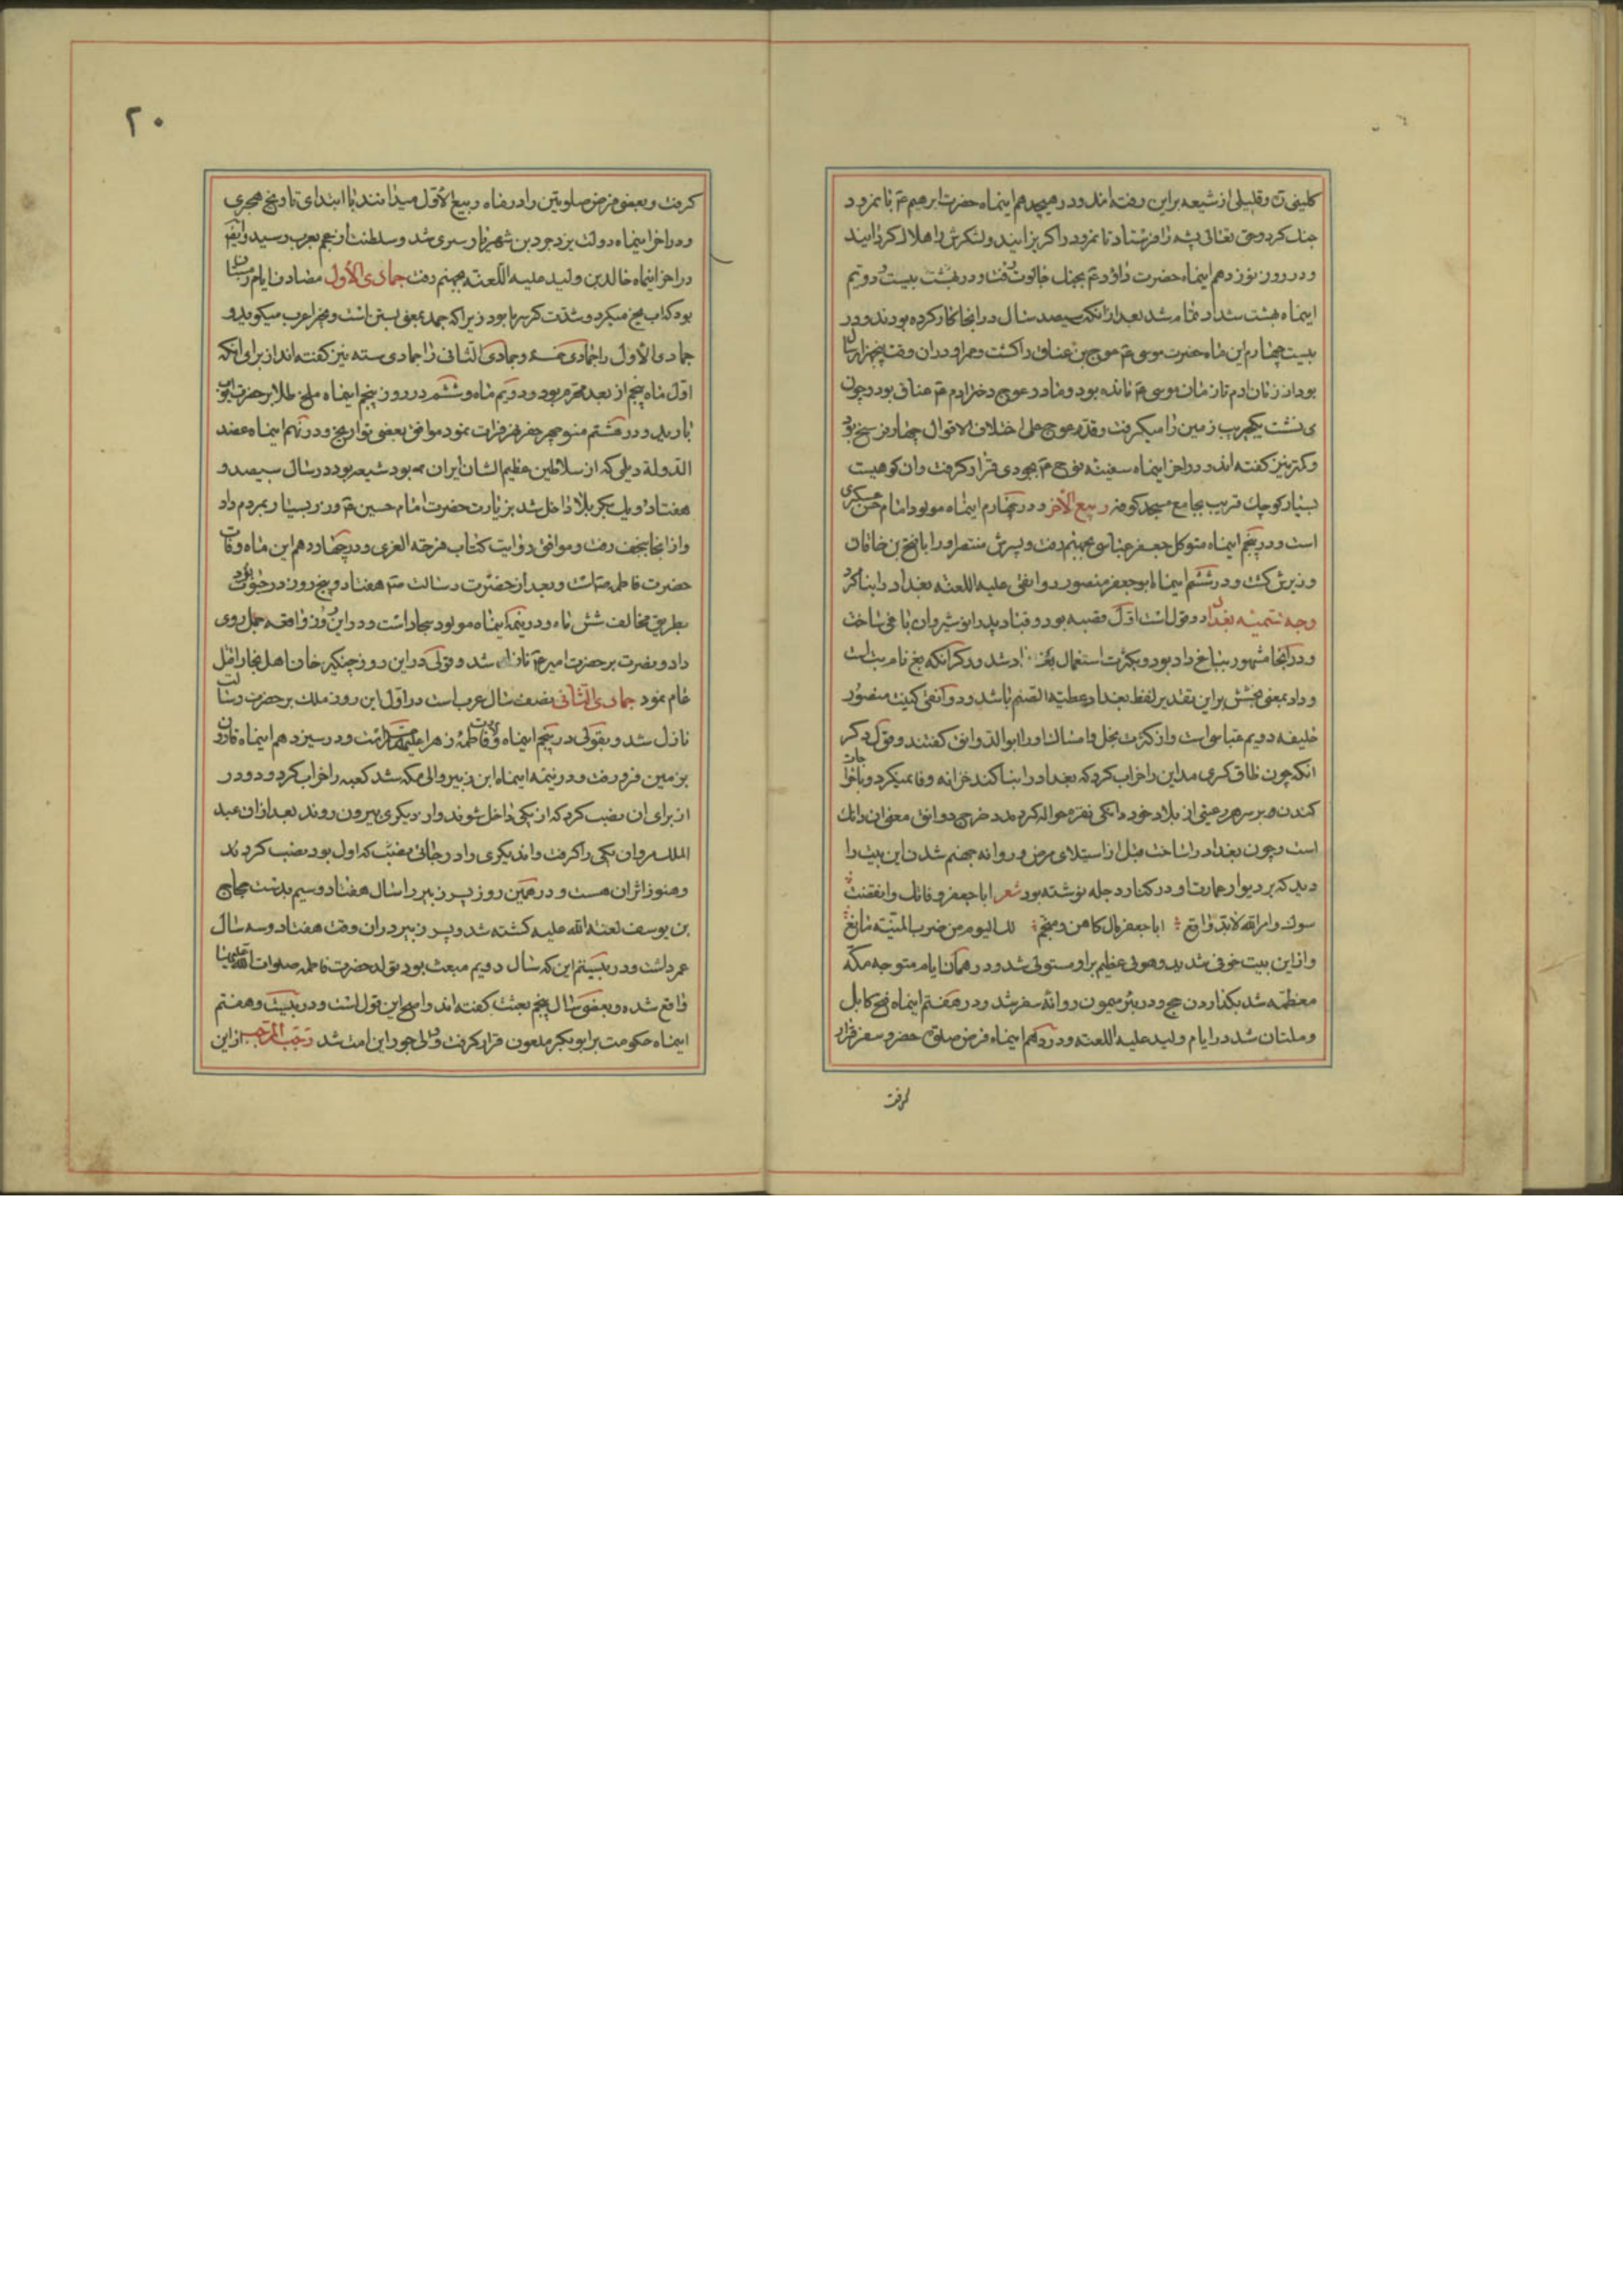 کلینی ره و قلیلی از شیعه بر این رفته‌اند و در هیجدهم اینماه حضرت ابرهیم ع با نمرود
جنك کرد و حق تعالی پشه را فرستاد تا نمرود را کریزانید و لشکرش را هلاك کردانید
و در روز نوزدهم اینماه حضرت داود ع بجنك جالوت رفت و در بیست و دویم
اینماه بهشت شداد تمام شد بعد از انکه سیصد سال در انجا کار کرده بودند و در
بیست چهارم این ماه حضرت موسی ع عوج بن عناق را کشت و عمر او در ان وقت پنجهزار سال
بود از زمان ادم تا زمان موسی ع مانده بود و مادر عوج دختر ادم ع عناق بود و چون
می نشست یکجریب زمین را میکرفت و قد عوج علی اختلاف الاقوال چهار فرسخ بود
و کمتر نیز کفته‌اند و در اخر اینماه سفینه نوح ع بجودی قرار کرفت و ان کوهیست
بسیار کوچك قریب بجامع مسجد کوفه ربیع الاخر و در چهارم اینماه مولود امام حسن عسکری
است و در پنجم اینماه متوکل جعفر عباسی بجهنم رفت و پسرش منتصر او را با فتح بن خاقان
وزیرش کشت و در ششم اینماه ابو جعفر منصور دوانقی علیه اللعنه بغداد را بنا کرد
وجه تسمیه بغداد دو قول است اول قصبه بود و قباد پدر انوشیروان باغی ساخت
و در انجا مشهور بباغ داد بود و بکثرت استعمال بغداد شد و دکر انکه بغ نام بت است
و داد بمعنی بخشش بر این تقدیر لفظ بغداد عطیة الصنم باشد و دوانقی کنیت منصور
خلیفه دویم عباسی است و از کثرت بخل و امساك او را ابو الدوانق کفتند و قول دکر
انکه چون طاق کسری مداین را خراب کرد که بغداد را بنا کند خزانه وفا نمیکرد و باخراجات
کندن و بر سر هر رعیتی از بلاد خود دانکی نقره حواله کردند و خرج دوانق معنی ان دانك
است و چون بغداد را ساخت قبل از استیلای مرض و روانه جهنم شدن این بیت را
دید که بر دیوار عمارت او در کنار دجله نوشته بود شعر ابا جعفر و فاتك و انقضت
سنوك و امر الله لا بد واقع ابا جعفر هل کاهن و منجم لك الیوم من ضرب المنیة مانع
و از این بیت خوفی شدید و هولی عظیم بر او مستولی شد و در همان ایام متوجه مکه
معظمه شد بکذاردن حج و در بئر میمون روانه سقر شد و در هفتم اینماه فتح کابل
و ملتان شد در ایام ولید علیه اللعنه و در دهم اینماه فرض صلوة حضر و سفر قرار
کرفت
۲۰
کرفت و بعضی فرض صلوتین را در ماه ربیع الاول میدانند با ابتدای تاریخ هجری
و در اخر اینماه دولت یزدجرد بن شهریار سپری شد و سلطنت از عجم بعرب رسید و ایضا
در اخر اینماه خالد بن ولید علیه اللعنه بجهنم رفت جمادی الاول مصادف ایام زمستان
بود که اب یخ میکرد و شدت کرسرما بود زیرا که جمد بمعنی بستن است و عرب میکوید و
جمادی الاول را جمادی خمسه و جمادی الثانی را جمادی سته نیز کفته‌اند از برای انکه
اول ماه پنجم از بعد محرم بود و دویم ماه ششم در روز پنجم اینماه ملخ طلا بر حضرت ایوب
بارید و در هشتم منوچهر حفر نهر فرات نمود موافق بعضی تواریخ و در نهم اینماه عضد
الدوله دیلمی که از سلاطین عظیم الشان ایران بود شیعه بود در سال سیصد و
هفتاد و یك بکربلا داخل شد بزیارت حضرت امام حسین ع و زر بسیار بمردم داد
و از انجا بنجف رفت و موافق روایت کتاب فرحة الغری و در چهاردهم این ماه وفات
حضرت فاطمه ص است و بعد از حضرت رسالت ص هفتاد و پنج روز در حیات بود
بطریق مخالف شش ماه و در نیمه اینماه مولود سجاد است و در این روز واقعه جمل روی
داد و نصرت بر حضرت امیر ع نازل شد و قولی در این روز چنکیز خان اهل بخارا قتل
عام نمود جمادی الثانی نصف سال عرب است در اول این روز ملك بر حضرت رسالت
نازل شد و بقولی در پنجم اینماه وفات فاطمه زهرا علیها است و در سیزدهم اینماه قارون
بزمین فرو رفت و در نیمه اینماه ابن زبیر والی مکه شد کعبه را خراب کرد و دو در
از برای ان نصب کرد که از یکی داخل شوند و از دیکری بیرون روند بعد از ان عبد
الملك مروان یکی را کرفت و ان دیکری را در جائی نصب که اول بود نصب کردند
و هنوز اثر ان هست و در همین روز پسر زبیر را سال هفتاد و سیم بدست حجاج
بن یوسف لعنة الله علیه کشته شد و پسر زبیر در ان وقت هفتاد و سه سال
عمر داشت و در بیستم این که سال دویم مبعث بود تولد حضرت فاطمه صلوات الله علیها
واقع شده و بعضی سال پنجم بعثت کفته‌اند و اصح این قول است و در بیست و هفتم
اینماه حکومت بر ابوبکر ملعون قرار کرفت و این امت شد رجب المرجب از این